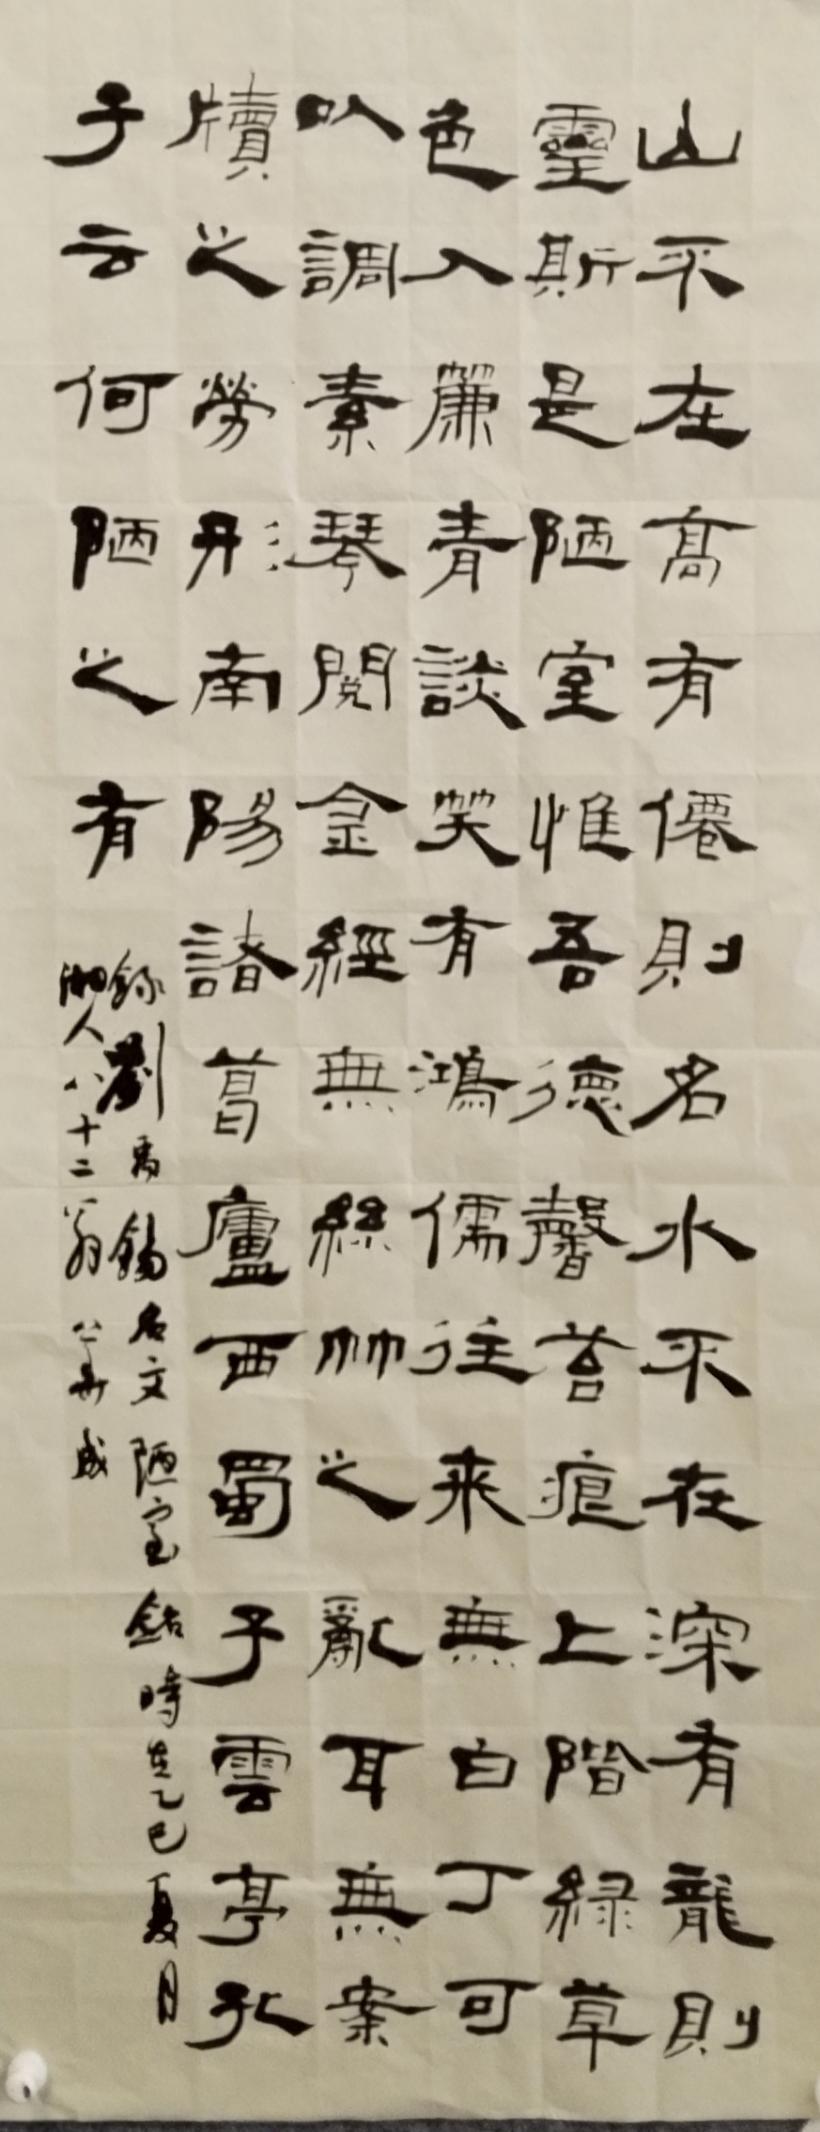 山不在高有僊則名水不在深有龍則
靈斯是陋室惟吾德馨苔痕上階緑草
色入簾青談笑有鴻儒往来無白丁可
以調素琴閱金經無絲竹之亂耳無案
牘之勞形南陽諸葛廬西蜀子雲亭孔
子云何陋之有
錄劉禹錫名文陋室銘時在乙巳夏月
湘人八十二翁